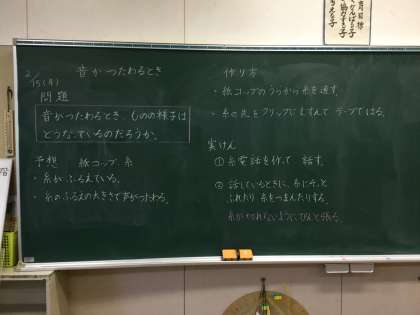 2/15(月)
音がつたわるとき
問題
音がつたわるとき、ものの様子は
どうなっているのだろうか。
予想 紙コップ、糸
・糸がふるえている。
・糸のふるえの大きさで音がつたわる。
作り方
・紙コップのうらから糸を通す。
・糸の先をクリップにむすんで テープではる。
実けん
① 糸電話を作って、話す。
② 話しているときに、糸にそっと
ふれたり 糸をつまんだりする。